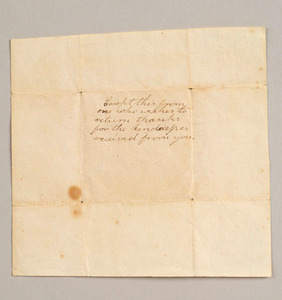 Except this from
one who wishes to
return thanks
for the kindness
received from you.